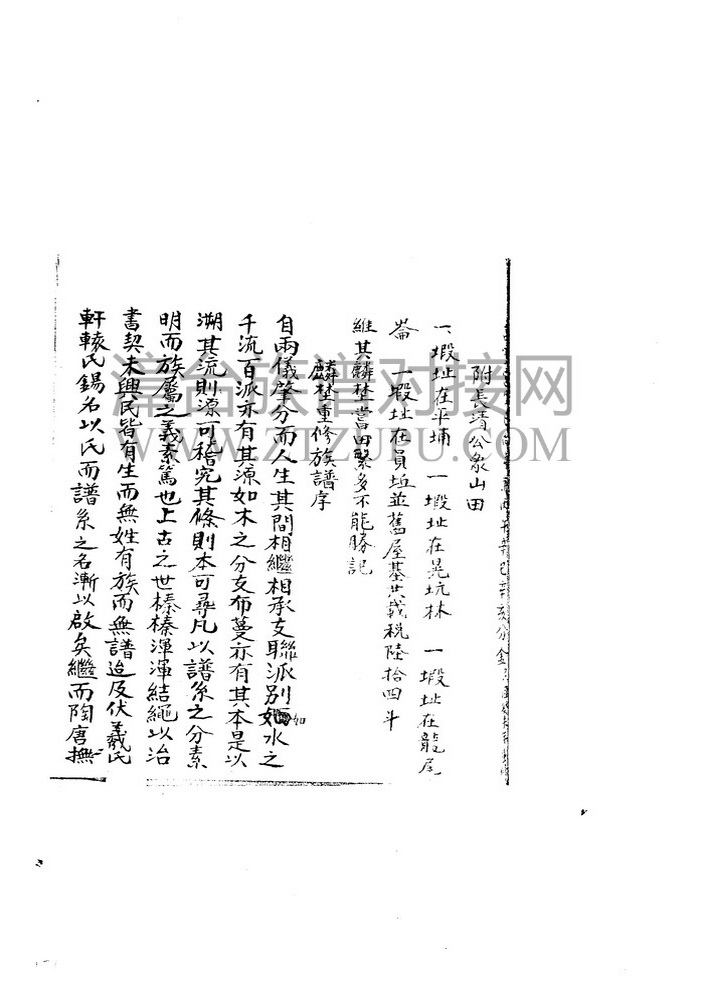 附長靖公象山田
一塅址在平埔 一塅址在晃坑林 一塅址在龍尾
崙 一塅址在員垇並舊屋基共載稅陸拾四斗
維其麟埜嘗田繁多不能勝記
麟埜重修族譜序
自兩儀肇分而人生其間相繼相承支聯派別如水之
千流百派亦有其源如木之分支布蔓亦有其本是以
溯其流則源可稽究其條則本可尋凡以譜系之分素
明而族屬之義素篤也上古之世榛榛渾渾結繩以治
書契未興民皆有生而無姓有族而無譜迨及伏羲氏
軒轅氏錫名以氏而譜系之名漸以啟矣繼而陶唐撫
漳台族谱对接网
WWW.ZTZUPU.COM